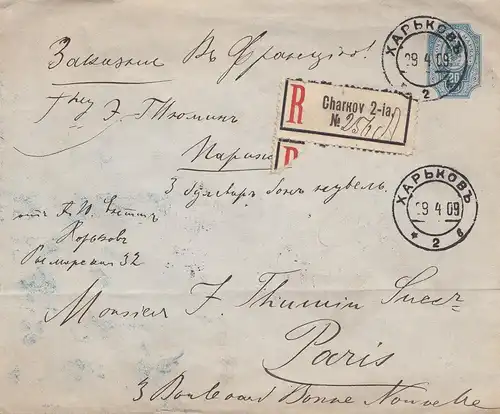 Заказное Въ Францiю!
Г-ну Э. Тюминъ
Парижъ
3 бульваръ бонъ нувель.
ХАРЬКОВЪ
29 4 09
2
20
R
Charkov 2-ia.
№
R
ХАРЬКОВЪ
29 4 09
* 2 в
отъ А. И.
Харьковъ
Рымарская 32
Monsieur F. Thumin Succr
Paris
3 Boulevard Bonne Nouvelle